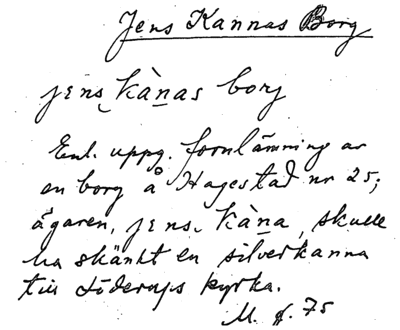 Jens Kannas Borg
jens kànas borj
Enl. uppg. fornlämning av
en borg å Hagestad nr 25;
ägaren, jens kàna, skulle
ha skänkt en silverkanna
till Löderups kyrka.
75